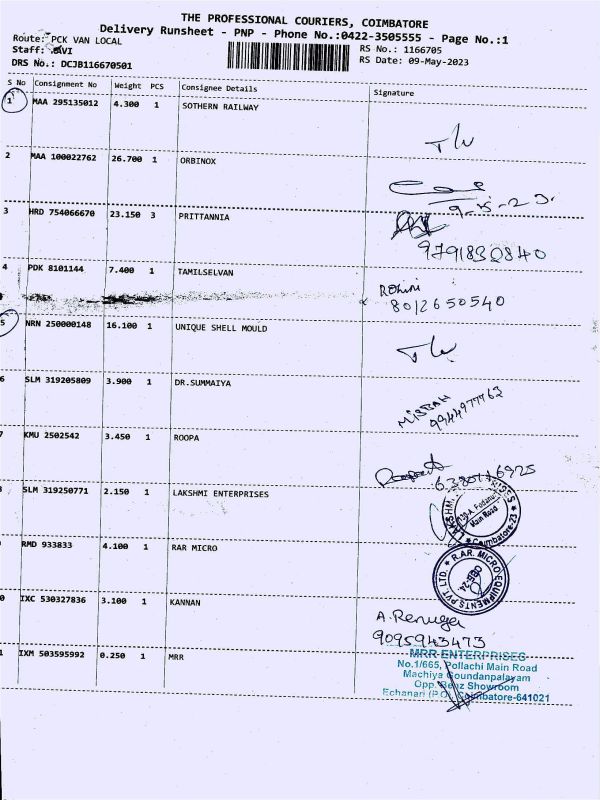 THE PROFESSIONAL COURIERS, COIMBATORE
Delivery Runsheet - PNP - Phone No.:0422-3505555 - Page No.:1
Route: PCK VAN LOCAL
RS No.: 1166705
Staff:
DRS No.: DCJB116670501
RS Date: 09-May-2023
S No Consignment No Weight PCS Consignee Details Signature
1 MAA 295135012 4.300 1 SOTHERN RAILWAY
2 MAA 100022762 26.700 1 ORBINOX
9-5-23.
3 HRD 754066670 23.150 3 PRITTANNIA
9791830840
4 PDK 8101144 7.400 1 TAMILSELVAN
Rohini
8012650540
5 NRN 250000148 16.100 1 UNIQUE SHELL MOULD
6 SLM 319205809 3.900 1 DR.SUMMAIYA
MISBAH
9944977762
7 KMU 2502542 3.450 1 ROOPA
SLM 319250771 2.150 1 LAKSHMI ENTERPRISES
Main Road
Coimbatore-23
RMD 933833 4.100 1 RAR MICRO
R.A.R. MICRO EQUIPMENTS PVT. LTD.
0 IXC 530327836 3.100 1 KANNAN
A. Renuga
9095943473
1 IXM 503595992 0.250 1 MRR
MRR ENTERPRISES
No.1/665, Pollachi Main Road
Machiya Goundanpalayam
Opp. Benz Showroom
Echanari (P.O), Coimbatore-641021